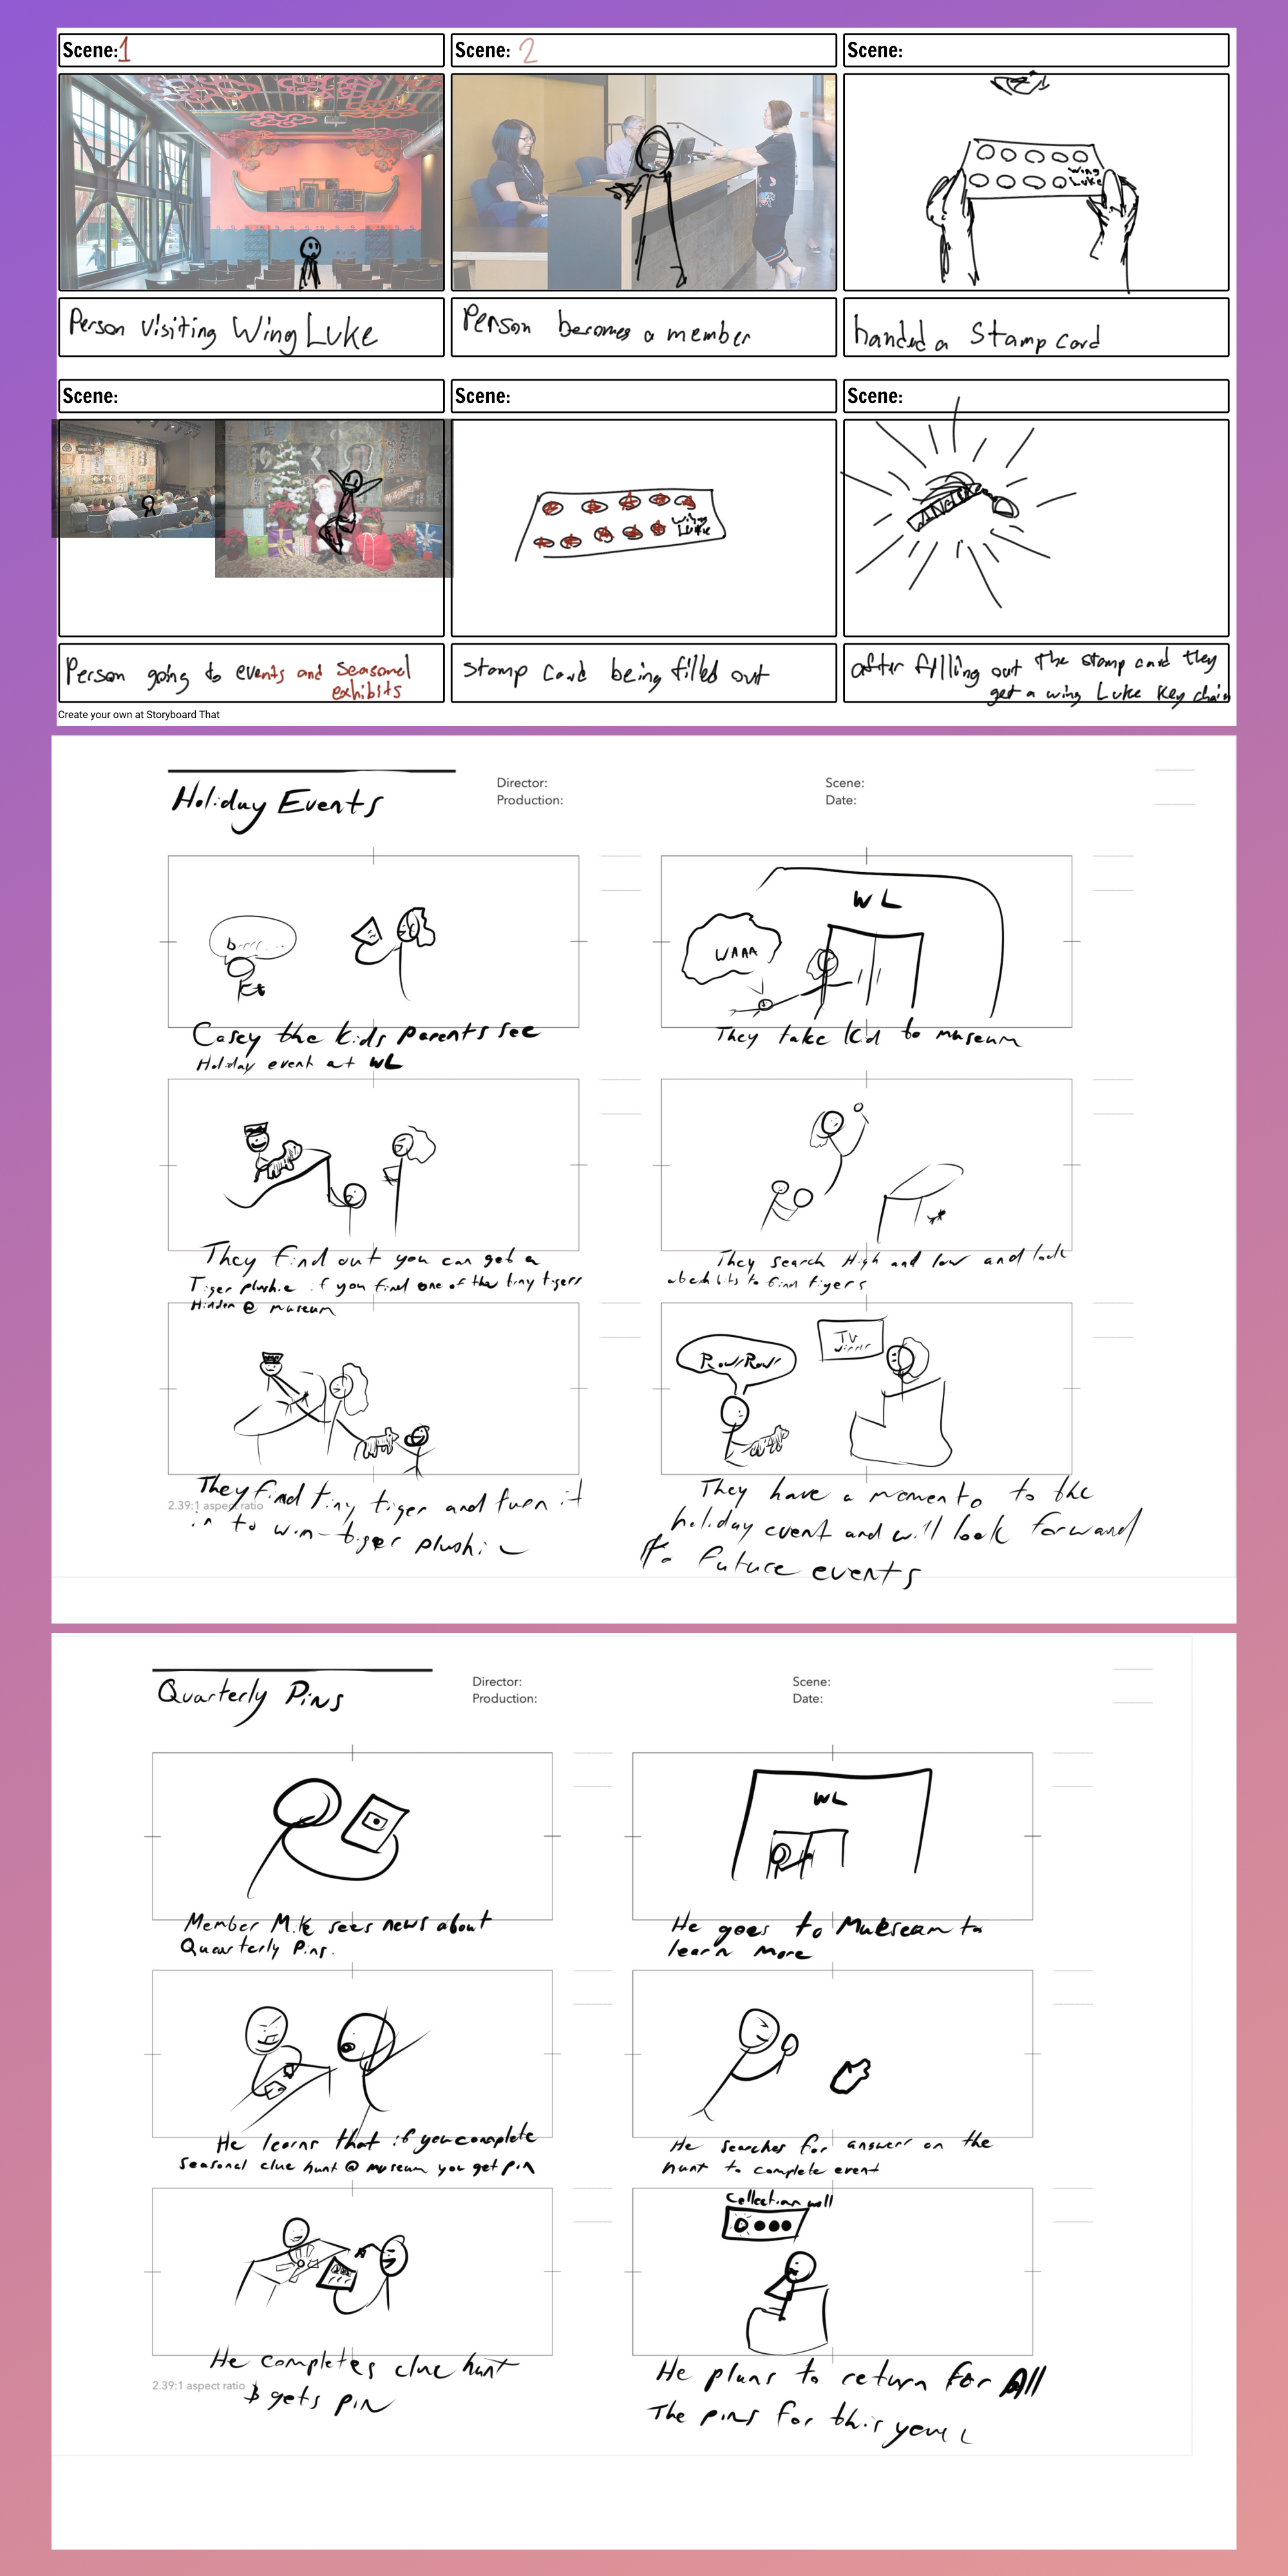 Scene: 1
Scene: 2
Scene:
Wing
Luke
Person visiting Wing Luke
Person becomes a member
handed a Stamp card
Scene:
Scene:
Scene:
Wing
Luke
Person going to events and Seasonal
exhibits
Stamp Card being filled out
after filling out the stamp card they
get a wing Luke Key chain
Create your own at Storyboard That
Holiday Events
Director:
Production:
Scene:
Date:
WL
WAAA
Casey the kids parents see
Holiday event at WL
They take kid to museum
They find out you can get a
Tiger plushie if you find one of the tiny tigers
Hidden @ museum
They search High and low and look
to find tigers
TV
They find tiny tiger and turn it
in to win tiger plushie
2.39:1 aspect ratio
They have a momento to the
holiday event and will look forward
to future events
Quarterly Pins
Director:
Production:
Scene:
Date:
WL
Member Mike sees news about
Quarterly Pins.
He goes to Museam to
learn more
He learns that if you complete
seasonal clue hunt @ museum you get pin
He searches for answers on the
hunt to complete event
Collection wall
He completes clue hunt
& gets pin
2.39:1 aspect ratio
He plans to return for All
The pins for this year